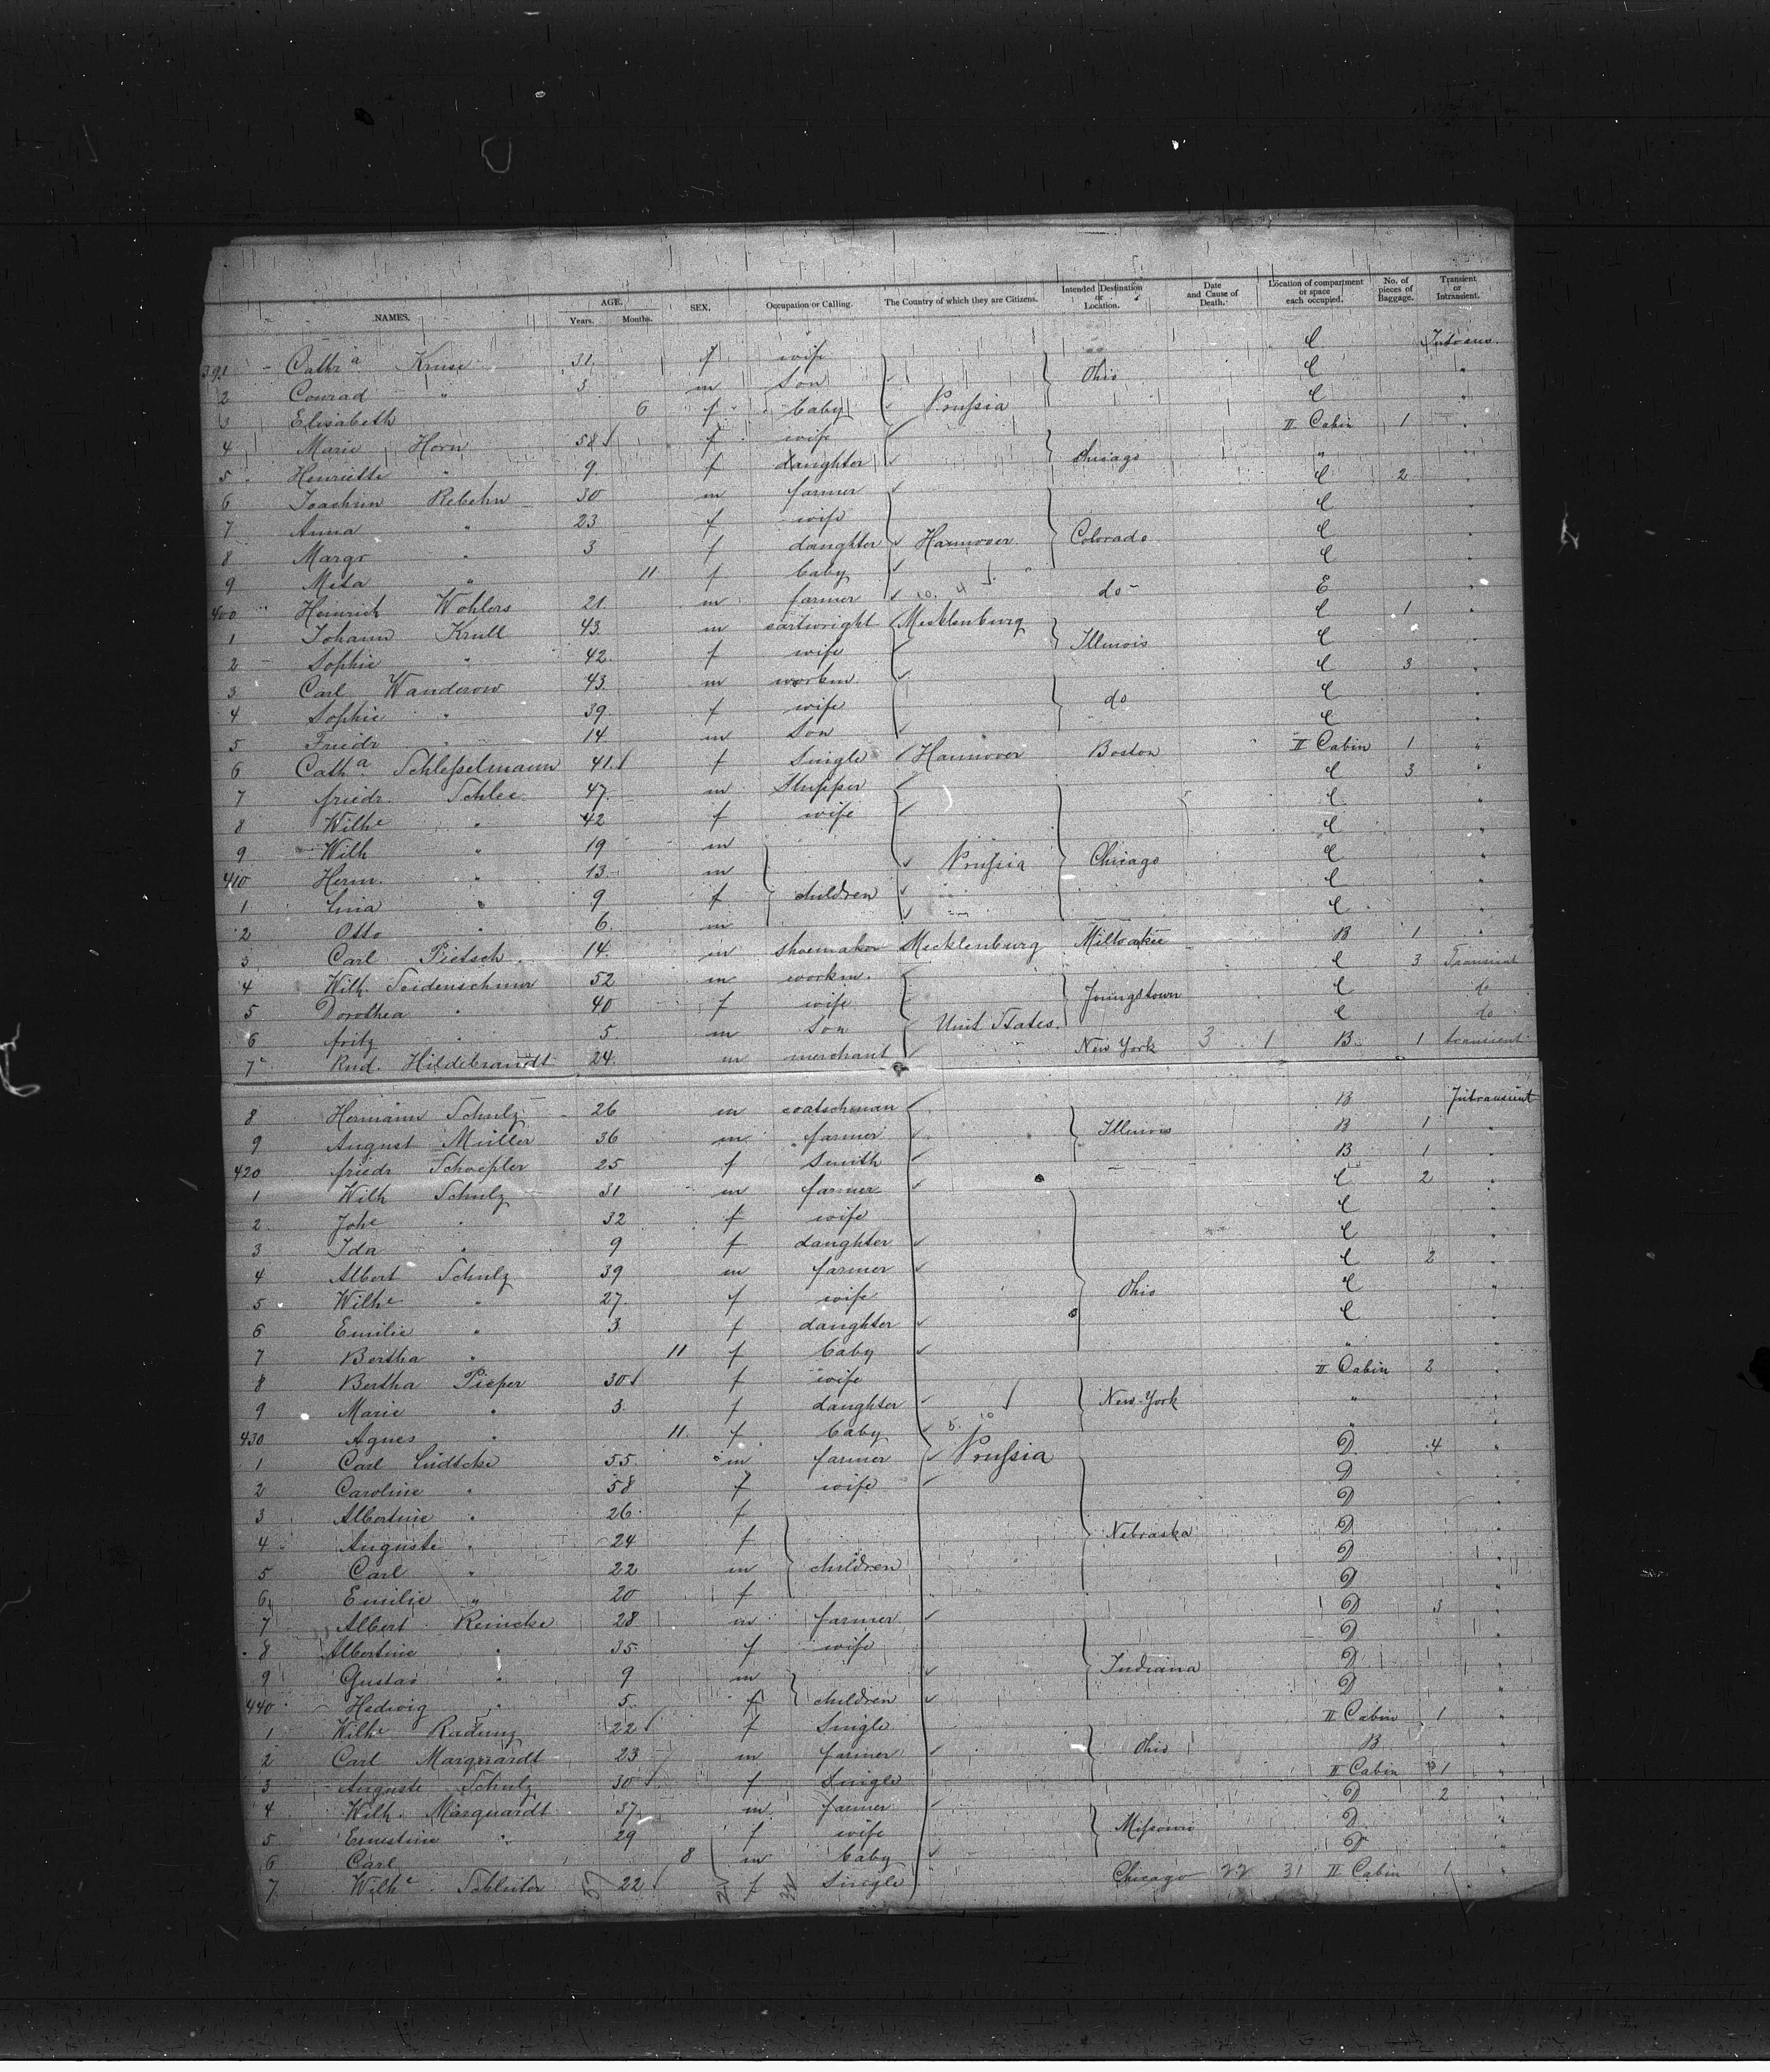 NAMES. AGE. Years. Months. SEX. Occupation or Calling. The Country of which they are Citizens. Intended Destination or Location. Date and Cause of Death. Location of compartment or space each occupied. No. of pieces of Baggage. Transient or Intransient.
391 Cathr a Kruse 31 f wife C
2 Conrad " 3 m Son Ohio C "
3 Elisabeth 6 f baby Prussia C "
4 Marie Horn 58 f wife II Cabin 1 "
5 Henriette " 9 f daughter Chicago " "
6 Joachim Rebehn 30 m farmer C 2 "
7 Anna " 23 f wife C "
8 Margr " 3 f daughter Hannover Colorado C "
9 Meta " 11 f baby C "
400 Heinrich Wohlers 21 m farmer do E "
1 Johann Krull 43 m cartwright Mecklenburg C 1 "
2 Sophie " 42 f wife Illinois C "
3 Carl Wanderow 43 m workm. C 3 "
4 Sophie " 39 f wife do C "
5 Friedr " 14 m Son C "
6 Cath a Schlesselmann 41 f Single Hannover Boston II Cabin 1 "
7 friedr. Schlee 47 m C 3 "
8 Wilhe " 42 f wife C "
9 Wilh " 19 m C "
410 Herm. " 13 m Prussia Chicago C "
1 Lina " 9 f children C "
2 Otto " 6 m C "
3 Carl Pietsch 14 m shoemaker Mecklenburg Milwakie B 1 "
4 Wilh. Seidenschnur 52 m workm. C 3 Transient
5 Dorothea " 40 f wife Joungstown C do
6 fritz " 5 m Son Unit States C do
7 Rud. Hildebrandt 24 m merchant New York 3 1 B 1 transient
8 Hermann Schulz 26 m coatschman B Intransient
9 August Müller 36 m farmer Illinois B 1 "
420 friedr Schoepler 25 f Smith B 1 "
1 Wilh Schulz 31 m farmer C 2 "
2 Johe " 32 f wife C "
3 Ida " 9 f daughter C "
4 Albert Schulz 39 m farmer C 2 "
5 Wilhe " 27 f wife Ohio C "
6 Emilie " 3 f daughter C "
7 Bertha " 11 f baby " "
8 Bertha Pieper 30 f wife II Cabin 2 "
9 Marie " 3 f daughter New-York " "
430 Agnes " 11 f baby " "
1 Carl Lüdtcke 55 m farmer Prussia D 4 "
2 Caroline " 58 f wife D "
3 Albertine " 26 f D "
4 Auguste " 24 f Nebraska D "
5 Carl " 22 m children D "
6 Emilie " 20 f D "
7 Albert Reincke 28 m farmer D 3 "
8 Albertine " 35 f wife D "
9 Gustav " 9 m Indiana D "
440 Hedwig " 5 f children D "
1 Wilhe Radung 22 f Single II Cabin 1 "
2 Carl Marquardt 23 m farmer Ohio B "
3 Auguste Schulz 30 f Single II Cabin 1 "
4 Wilh. Marquardt 37 m farmer D 2 "
5 Ernestine " 29 f wife Missouri D "
6 Carl 8 m baby D "
7 Wilhe Schluter 22 f Single Chicago 22 31 II Cabin 1 "